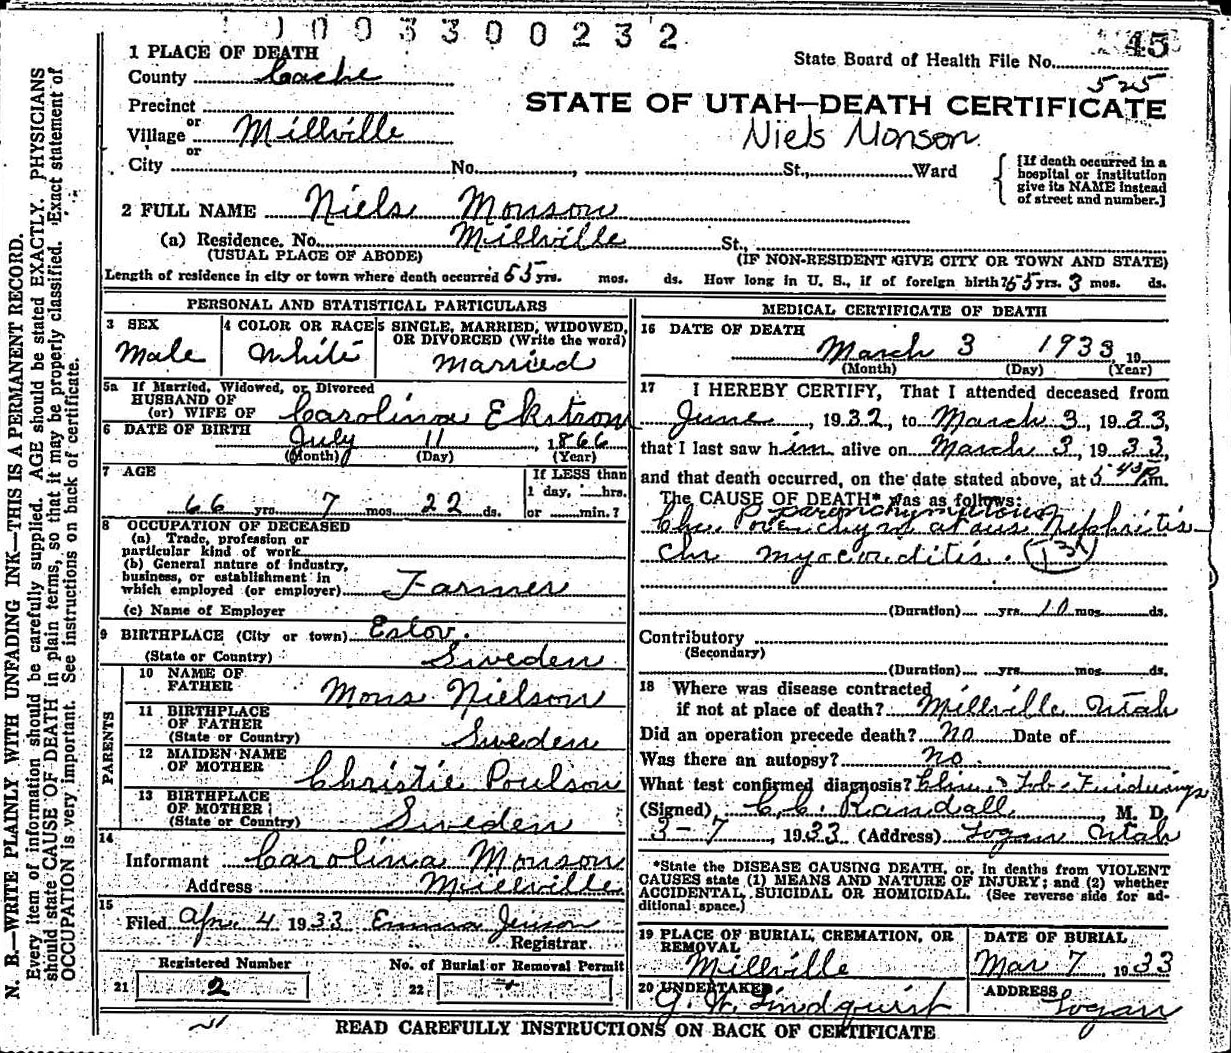 1 0 0 9 3 3 0 0 2 3 2
1 PLACE OF DEATH
State Board of Health File No. 45
County Cache
525
Precinct
STATE OF UTAH—DEATH CERTIFICATE
or
Village Millville
Niels Monson
or
City No. , St., Ward
[If death occurred in a hospital or institution give its NAME instead of street and number.]
2 FULL NAME Niels Monson
(a) Residence, No. Millville St.,
(USUAL PLACE OF ABODE) (IF NON-RESIDENT GIVE CITY OR TOWN AND STATE)
Length of residence in city or town where death occurred 55 yrs. mos. ds. How long in U. S., if of foreign birth? 55 yrs. 3 mos. ds.
PERSONAL AND STATISTICAL PARTICULARS
3 SEX
Male
4 COLOR OR RACE
White
5 SINGLE, MARRIED, WIDOWED,
OR DIVORCED (Write the word)
Married
5a If Married, Widowed, or Divorced
HUSBAND OF
(or) WIFE OF Carolina Ekstrom
6 DATE OF BIRTH
July 11, 1866
(Month) (Day) (Year)
7 AGE
66 yrs. 7 mos. 22 ds.
If LESS than
1 day, hrs.
or min.?
8 OCCUPATION OF DECEASED
(a) Trade, profession or
particular kind of work
(b) General nature of industry,
business, or establishment in
which employed (or employer) Farmer
(c) Name of Employer
9 BIRTHPLACE (City or town) Eslov.
(State or Country) Sweden
PARENTS
10 NAME OF
FATHER Mons Nielson
11 BIRTHPLACE
OF FATHER
(State or Country) Sweden
12 MAIDEN NAME
OF MOTHER Christie Poulson
13 BIRTHPLACE
OF MOTHER
(State or Country) Sweden
14
Informant Carolina Monson
Address Millville
15
Filed Apr. 4 1933 Emma Jenson
Registrar.
Registered Number
21 2
No. of Burial or Removal Permit
22
MEDICAL CERTIFICATE OF DEATH
16 DATE OF DEATH
March 3 1933, 19
(Month) (Day) (Year)
17 I HEREBY CERTIFY, That I attended deceased from
June, 1932, to March 3, 1933,
that I last saw him alive on March 3, 1933,
and that death occurred, on the date stated above, at 5 45 P.m.
The CAUSE OF DEATH* was as follows:
Parenchymatous
Chr. Nephritis
Chr myocarditis. (131)
(Duration) yrs. 10 mos. ds.
Contributory
(Secondary)
(Duration) yrs. mos. ds.
18 Where was disease contracted
if not at place of death? Millville Utah
Did an operation precede death? no Date of
Was there an autopsy? no.
What test confirmed diagnosis? Clin & Lab Findings
(Signed) C.C. Randall, M. D.
3-7, 1933 (Address) Logan Utah
*State the DISEASE CAUSING DEATH, or, in deaths from VIOLENT
CAUSES state (1) MEANS AND NATURE OF INJURY; and (2) whether
ACCIDENTAL, SUICIDAL OR HOMICIDAL. (See reverse side for ad-
ditional space.)
19 PLACE OF BURIAL, CREMATION, OR
REMOVAL
Millville
DATE OF BURIAL
Mar 7, 1933
20 UNDERTAKER
G. W. Lindquist
ADDRESS
Logan
READ CAREFULLY INSTRUCTIONS ON BACK OF CERTIFICATE
N. B.—WRITE PLAINLY WITH UNFADING INK—THIS IS A PERMANENT RECORD.
Every item of information should be carefully supplied. AGE should be stated EXACTLY. PHYSICIANS
should state CAUSE OF DEATH in plain terms, so that it may be properly classified. Exact statement of
OCCUPATION is very important. See instructions on back of certificate.